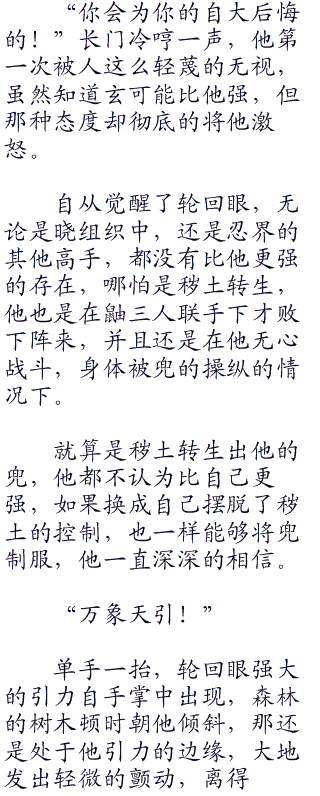 “你会为你的自大后悔
的！”长门冷哼一声，他第
一次被人这么轻蔑的无视，
虽然知道玄可能比他强，但
那种态度却彻底的将他激
怒。
自从觉醒了轮回眼，无
论是晓组织中，还是忍界的
其他高手，都没有比他更强
的存在，哪怕是秽土转生，
他也是在鼬三人联手下才败
下阵来，并且还是在他无心
战斗，身体被兜的操纵的情
况下。
就算是秽土转生出他的
兜，他都不认为比自己更
强，如果换成自己摆脱了秽
土的控制，也一样能够将兜
制服，他一直深深的相信。
“万象天引！”
单手一抬，轮回眼强大
的引力自手掌中出现，森林
的树木顿时朝他倾斜，那还
是处于他引力的边缘，大地
发出轻微的颤动，离得